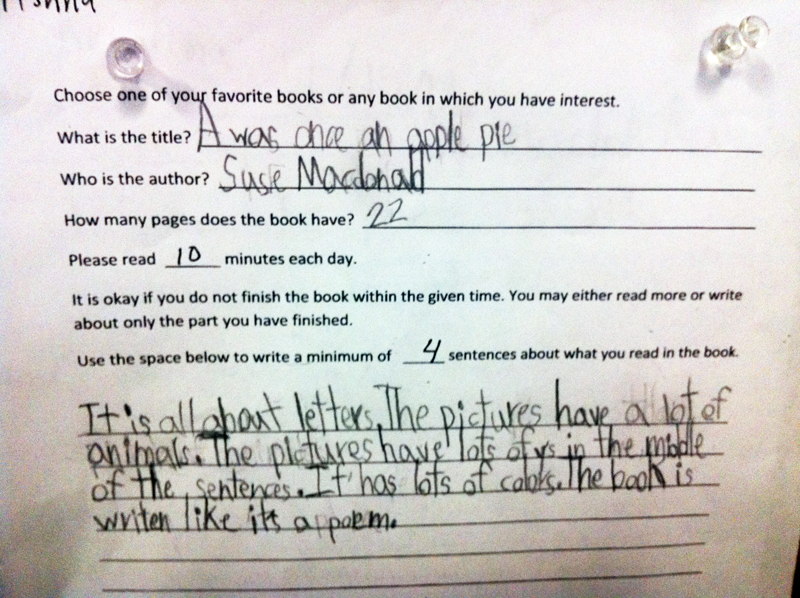 Choose one of your favorite books or any book in which you have interest.
What is the title? A was once an apple pie
Who is the author? Suse Macdonald
How many pages does the book have? 22
Please read 10 minutes each day.
It is okay if you do not finish the book within the given time. You may either read more or write
about only the part you have finished.
Use the space below to write a minimum of 4 sentences about what you read in the book.
It is all about letters. The pictures have a lot of
animals. The pictures have lots of ys in the middle
of the sentences. It has lots of colors. The book is
writen like its a poem.